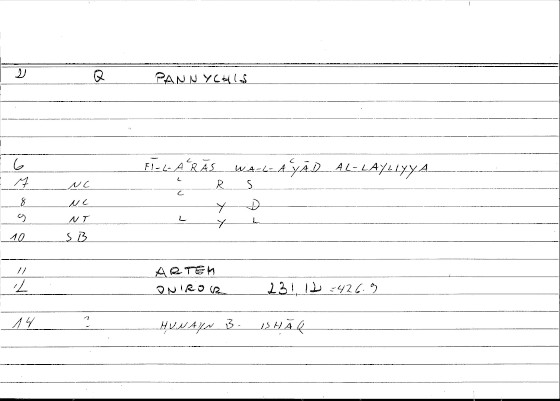 2 Q PANNYCHIS
6 FĪ-L-AʿRĀS WA-L-AʿYĀD AL-LAYLIYYA
7 NC ʿ R S
8 NC ʿ Y D
9 NT L Y L
10 SB
11 ARTEM
12 ONIROCR 231,12 = 426.9
14 ? ḤUNAYN B. ISḤĀQ